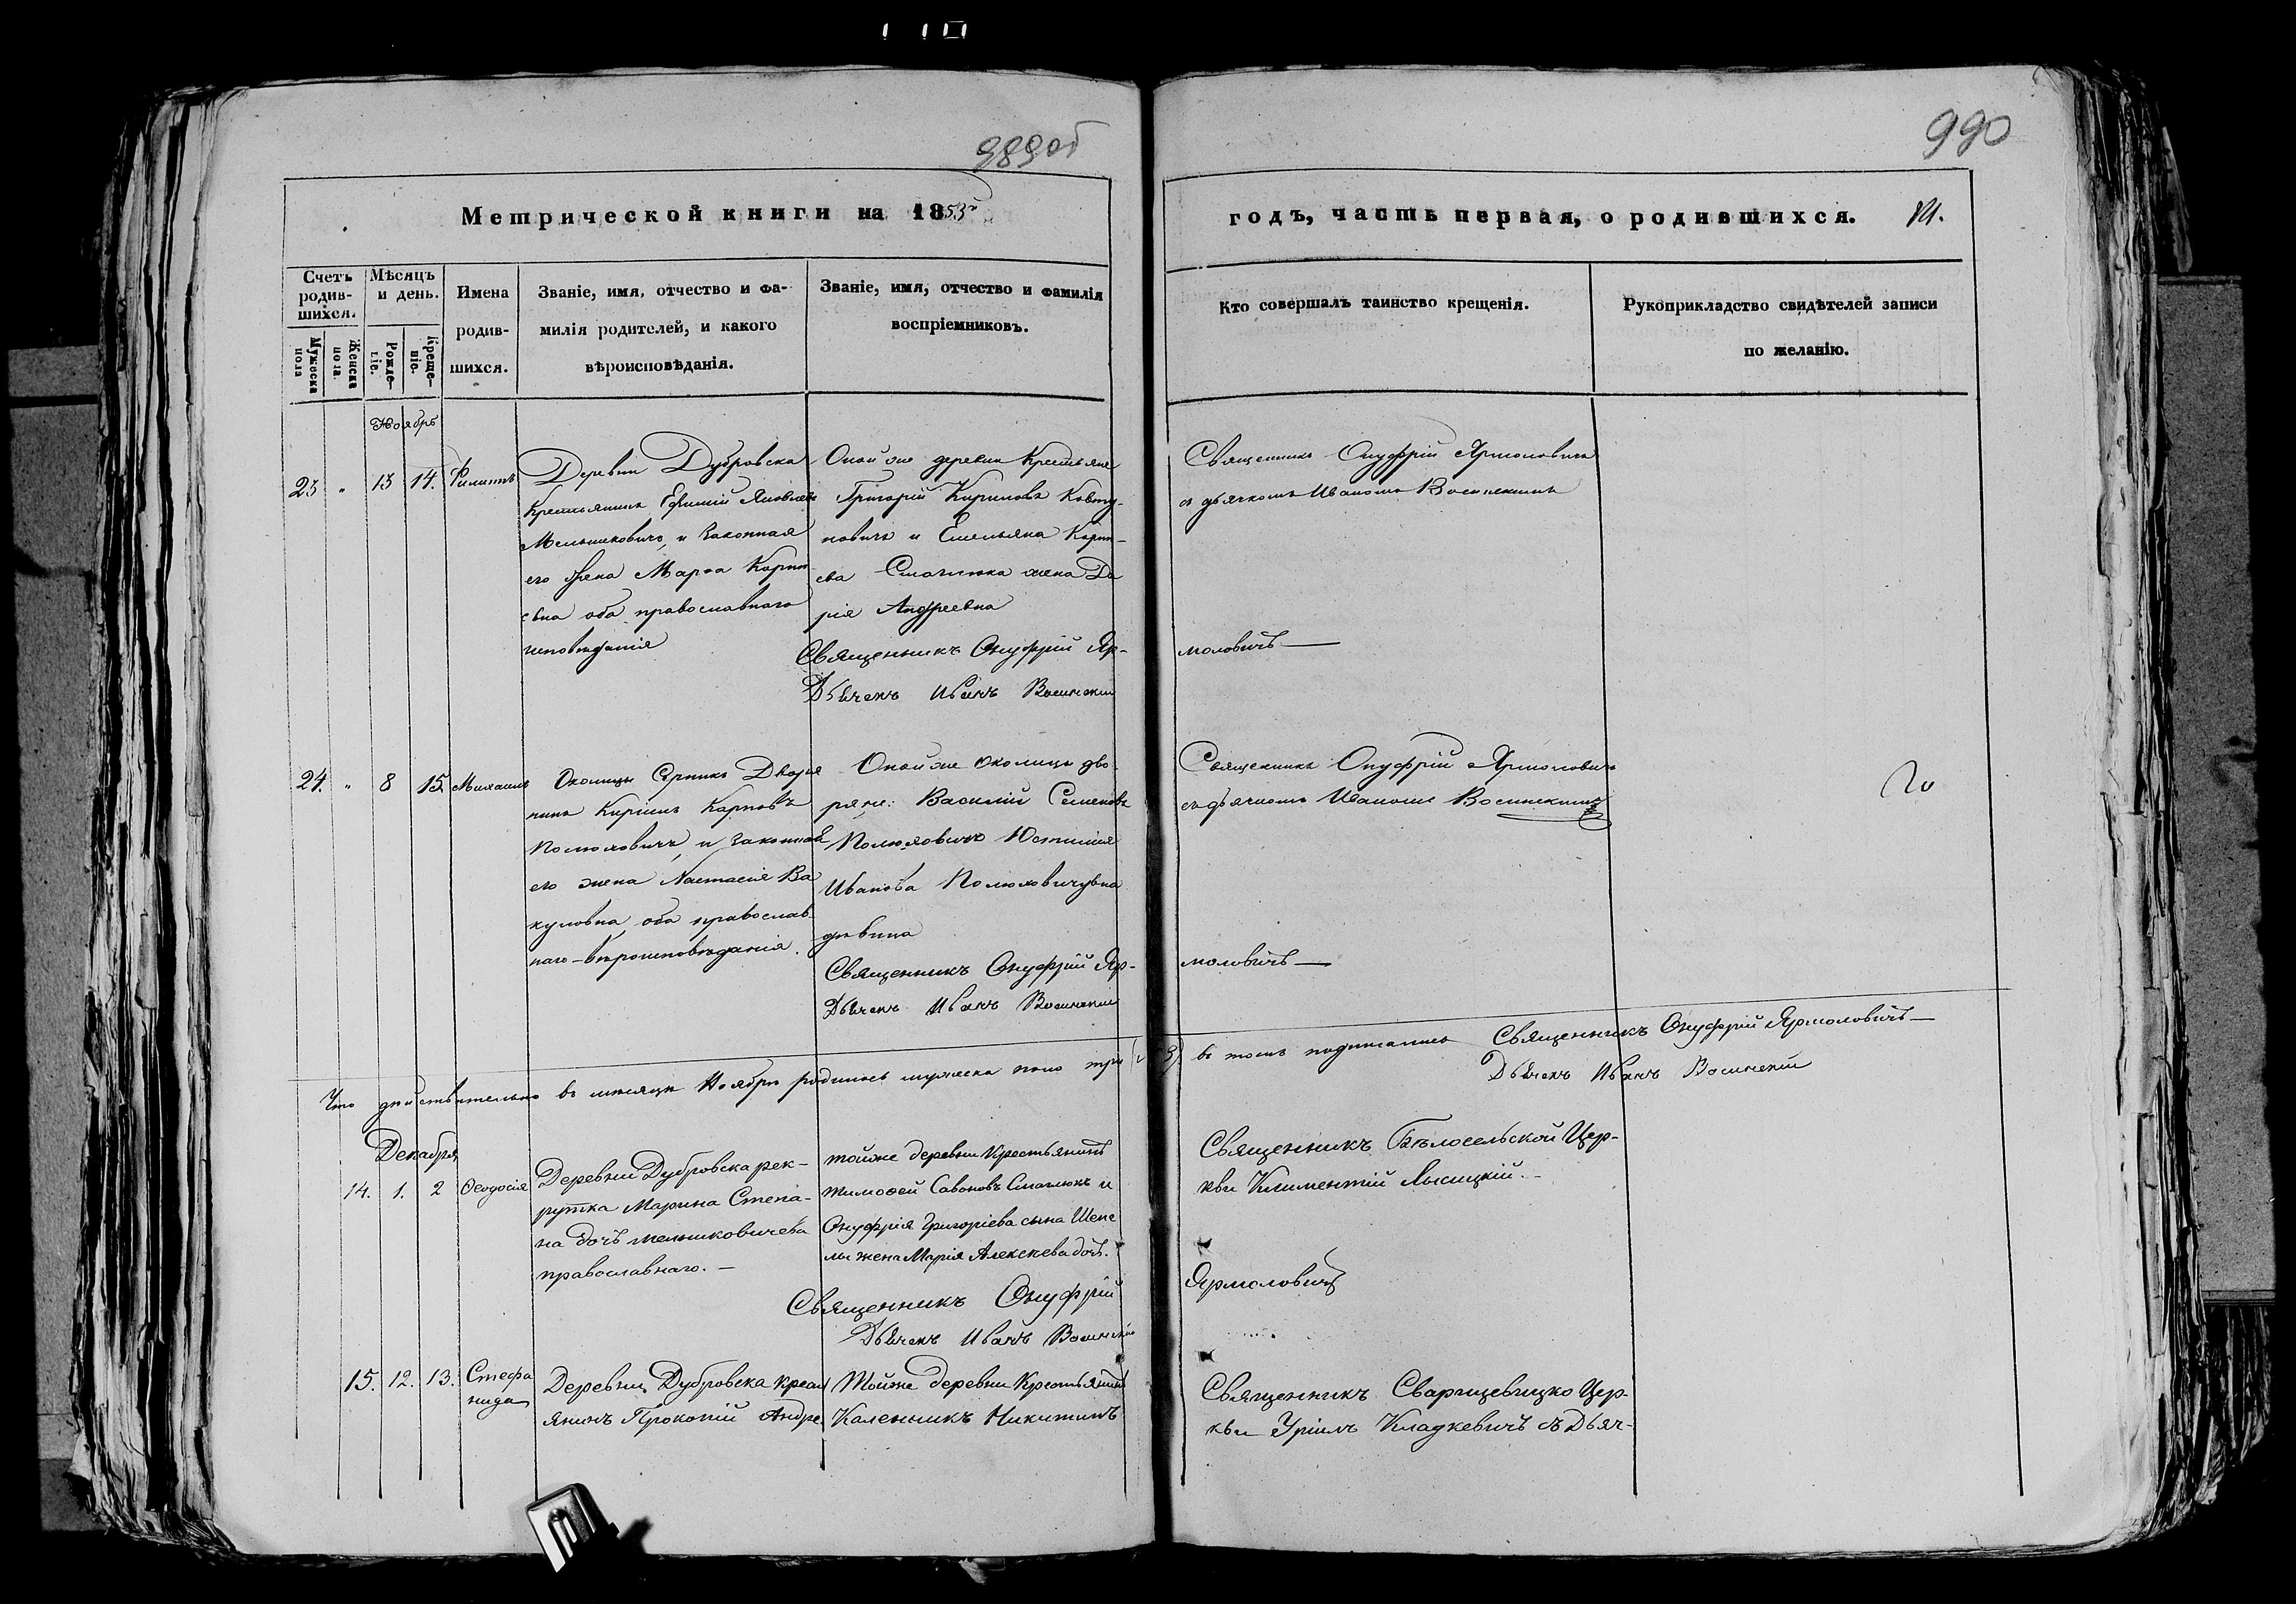 110
989 об
990
Метрической книги на 1853
годъ, часть первая, о родившихся.
Счетъ родив-
шихся.
Мѣсяцъ
и день.
Имена
родив-
шихся.
Званіе, имя, отчество и фа-
милія родителей, и какого
вѣроисповѣданія.
Званіе, имя, отчество и фамилія
воспріемниковъ.
Кто совершалъ таинство крещенія.
Рукоприкладство свидѣтелей записи
по желанію.
Мужеска
пола
Женска
пола.
Рожде-
ніе.
Креще-
ніе.
Ноябрь
23 " 13 14. Филиппъ
Деревни Дубровска
Крестьянинъ Ефимій Яковлевъ
Мельниковичъ, и законная
его жена Марѳа
оба православнаго
исповѣданія
Оной же деревни Крестьяне
Григорій Кириловъ
новичъ и Емельяна
ева Смаглюка жена Да
рія Андреевна
Священникъ Онуфрій Яр-
Дьячекъ Иванъ
Священникъ Онуфрій Ярмоловичъ
съ дьячкомъ Иваномъ
моловичъ —
24. " 8 15. Михаилъ
Околицы Серники Дворя
нинъ Карповъ
Полюховичъ, и законная
его жена Настасія Ва
куловна оба православ-
наго вѣроисповѣданія.
Оной же околицы дво-
ряне: Василій Семеновъ
Полюховичъ Юстинія
Иванова Полюховичувна
дѣвица
Священникъ Онуфрій Яр-
Дьячекъ Иванъ
Священникъ Онуфрій Ярмоловичъ
съ дьячкомъ Иваномъ
моловичъ —
Что дѣйствительно въ мѣсяцѣ Ноябрѣ родилось мужеска пола три (3) въ томъ подписались
Священникъ Онуфрій Ярмоловичъ —
Дьячекъ Иванъ
Декабря
14. 1. 2 Ѳеодосія
Деревни Дубровска рек-
рутка Марина Степа-
на дочь Мельниковичева
православнаго. —
тойже деревни Крестьянинъ
Тимофей Савоновъ Смаглюкъ и
Онуфрія Григоріева сына Шепе
лы жена Марія Алексѣева дочь.
Священникъ Онуфрій
Дьячекъ Иванъ
Священникъ Бѣлосельской Цер-
кви Климентій Лысицкій. —
Ярмоловичъ
15. 12. 13. Стефа
нида
Деревни Дубровска крест
янинъ Прокопій Андре
Тойже деревни Крестьянинъ
Каленникъ Никитинъ
Священникъ Сварицевицко Цер-
кви Кладкевичъ съ Дьяч-